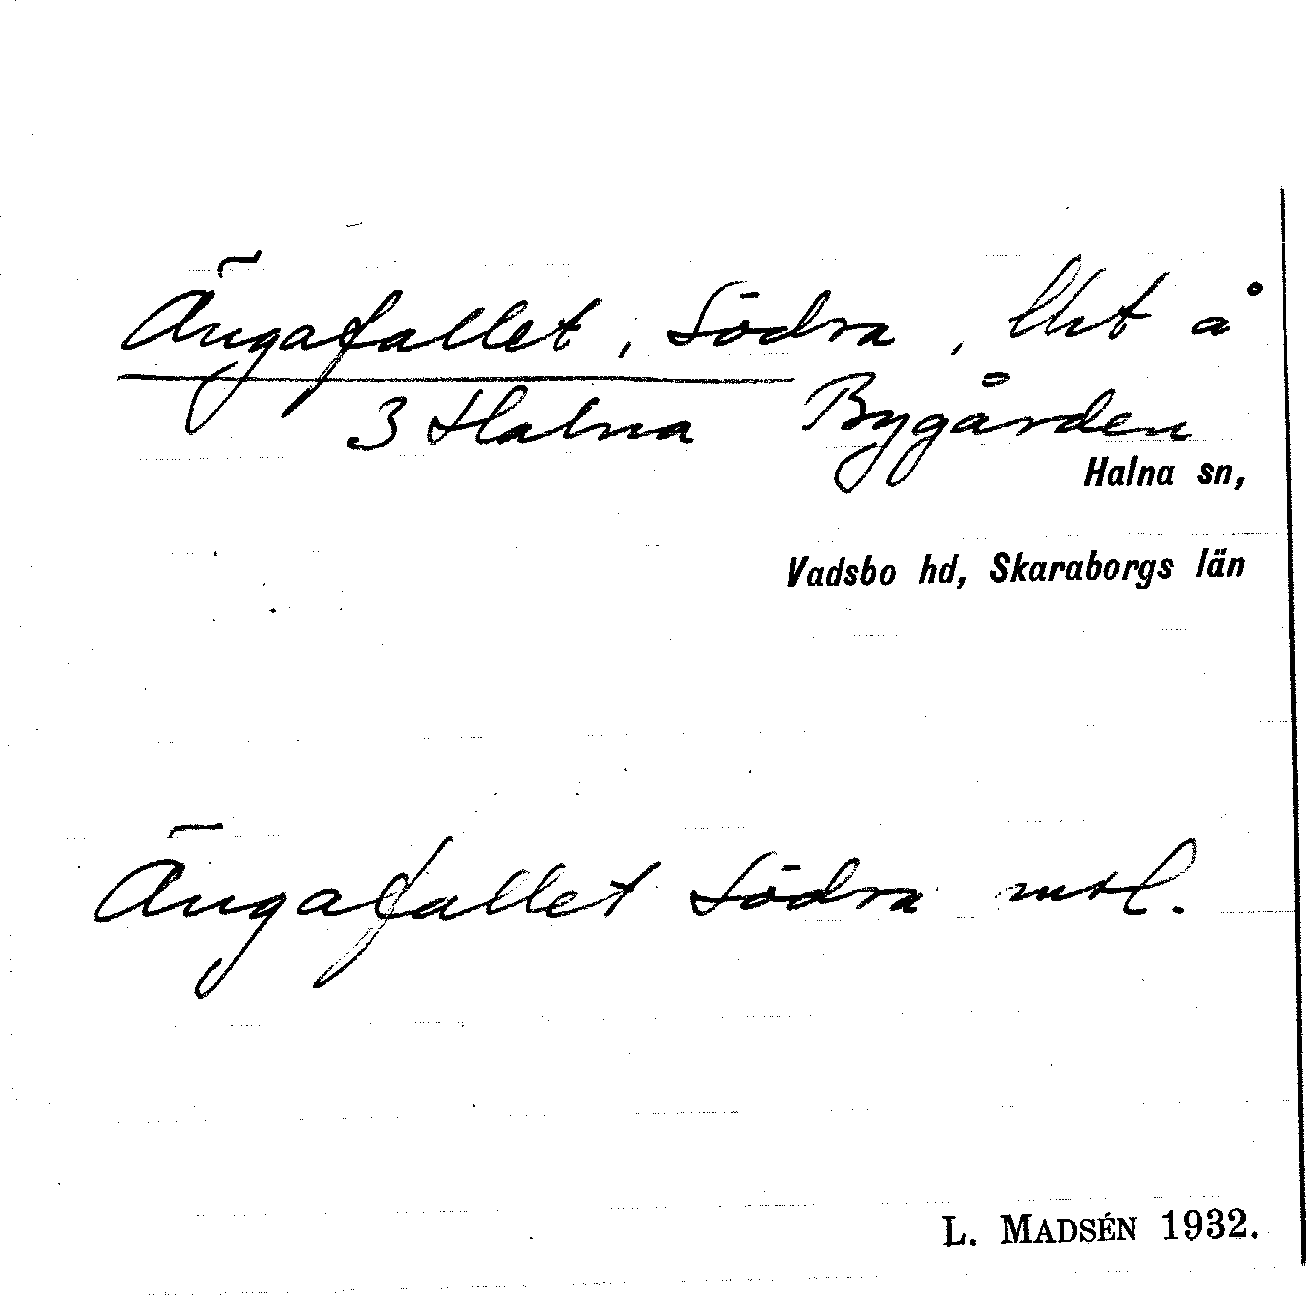 Ängafallet, Södra, lht å
3 Halna Bygården
Halna sn,
Vadsbo hd, Skaraborgs län
Ängafallet Södra
L. MADSÉN 1932.